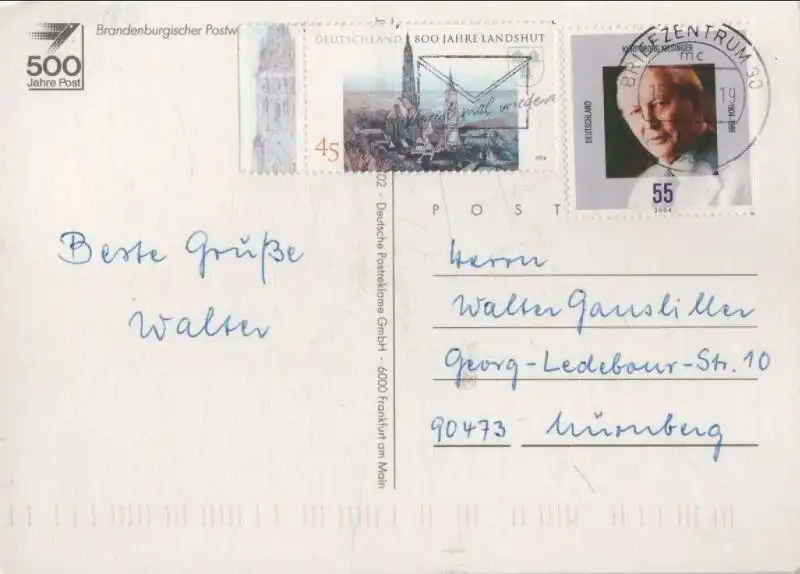 500
Jahre Post
Brandenburgischer Postw
DEUTSCHLAND 800 JAHRE LANDSHUT
mal wieder
45
2004
BRIEFZENTRUM 90
mc
19
KURT GEORG KIESINGER
DEUTSCHLAND
1904-1988
55
2004
POST
02 - Deutsche Postreklame GmbH - 6000 Frankfurt am Main
Beste Grüße
Walter
Herrn
Walter Gausliller
Georg-Ledebour-Str. 10
90473 Nürnberg